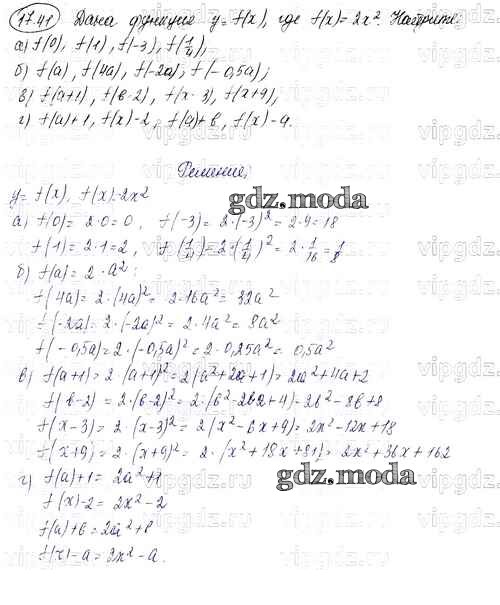 17.41 Дана функция y = f(x), где f(x) = 2x². Найдите:
а) f(0), f(1), f(-3), f(1/4);
б) f(a), f(4a), f(-2a), f(-0,5a);
в) f(a+1), f(b-2), f(x-3), f(x+9);
г) f(a)+1, f(x)-2, f(a)+b, f(x)-a.
Решение;
gdz.moda
y = f(x), f(x) = 2x²
а) f(0) = 2·0 = 0, f(-3) = 2·(-3)² = 2·9 = 18
f(1) = 2·1 = 2, f(1/4) = 2·(1/4)² = 2·1/16 = 1/8
б) f(a) = 2·a²;
f(4a) = 2·(4a)² = 2·16a² = 32a²
f(-2a) = 2·(-2a)² = 2·4a² = 8a²
f(-0,5a) = 2·(-0,5a)² = 2·0,25a² = 0,5a²
в) f(a+1) = 2(a+1)² = 2(a²+2a+1) = 2a²+4a+2
f(b-2) = 2·(b-2)² = 2·(b²-2b2+4) = 2b²-8b+8
f(x-3) = 2·(x-3)² = 2(x²-6x+9) = 2x²-12x+18
f(x+9) = 2·(x+9)² = 2·(x²+18x+81) = 2x²+36x+162
г) f(a)+1 = 2a²+1
gdz.moda
f(x)-2 = 2x²-2
f(a)+b = 2a²+b
f(x)-a = 2x²-a.
vipgdz.ru